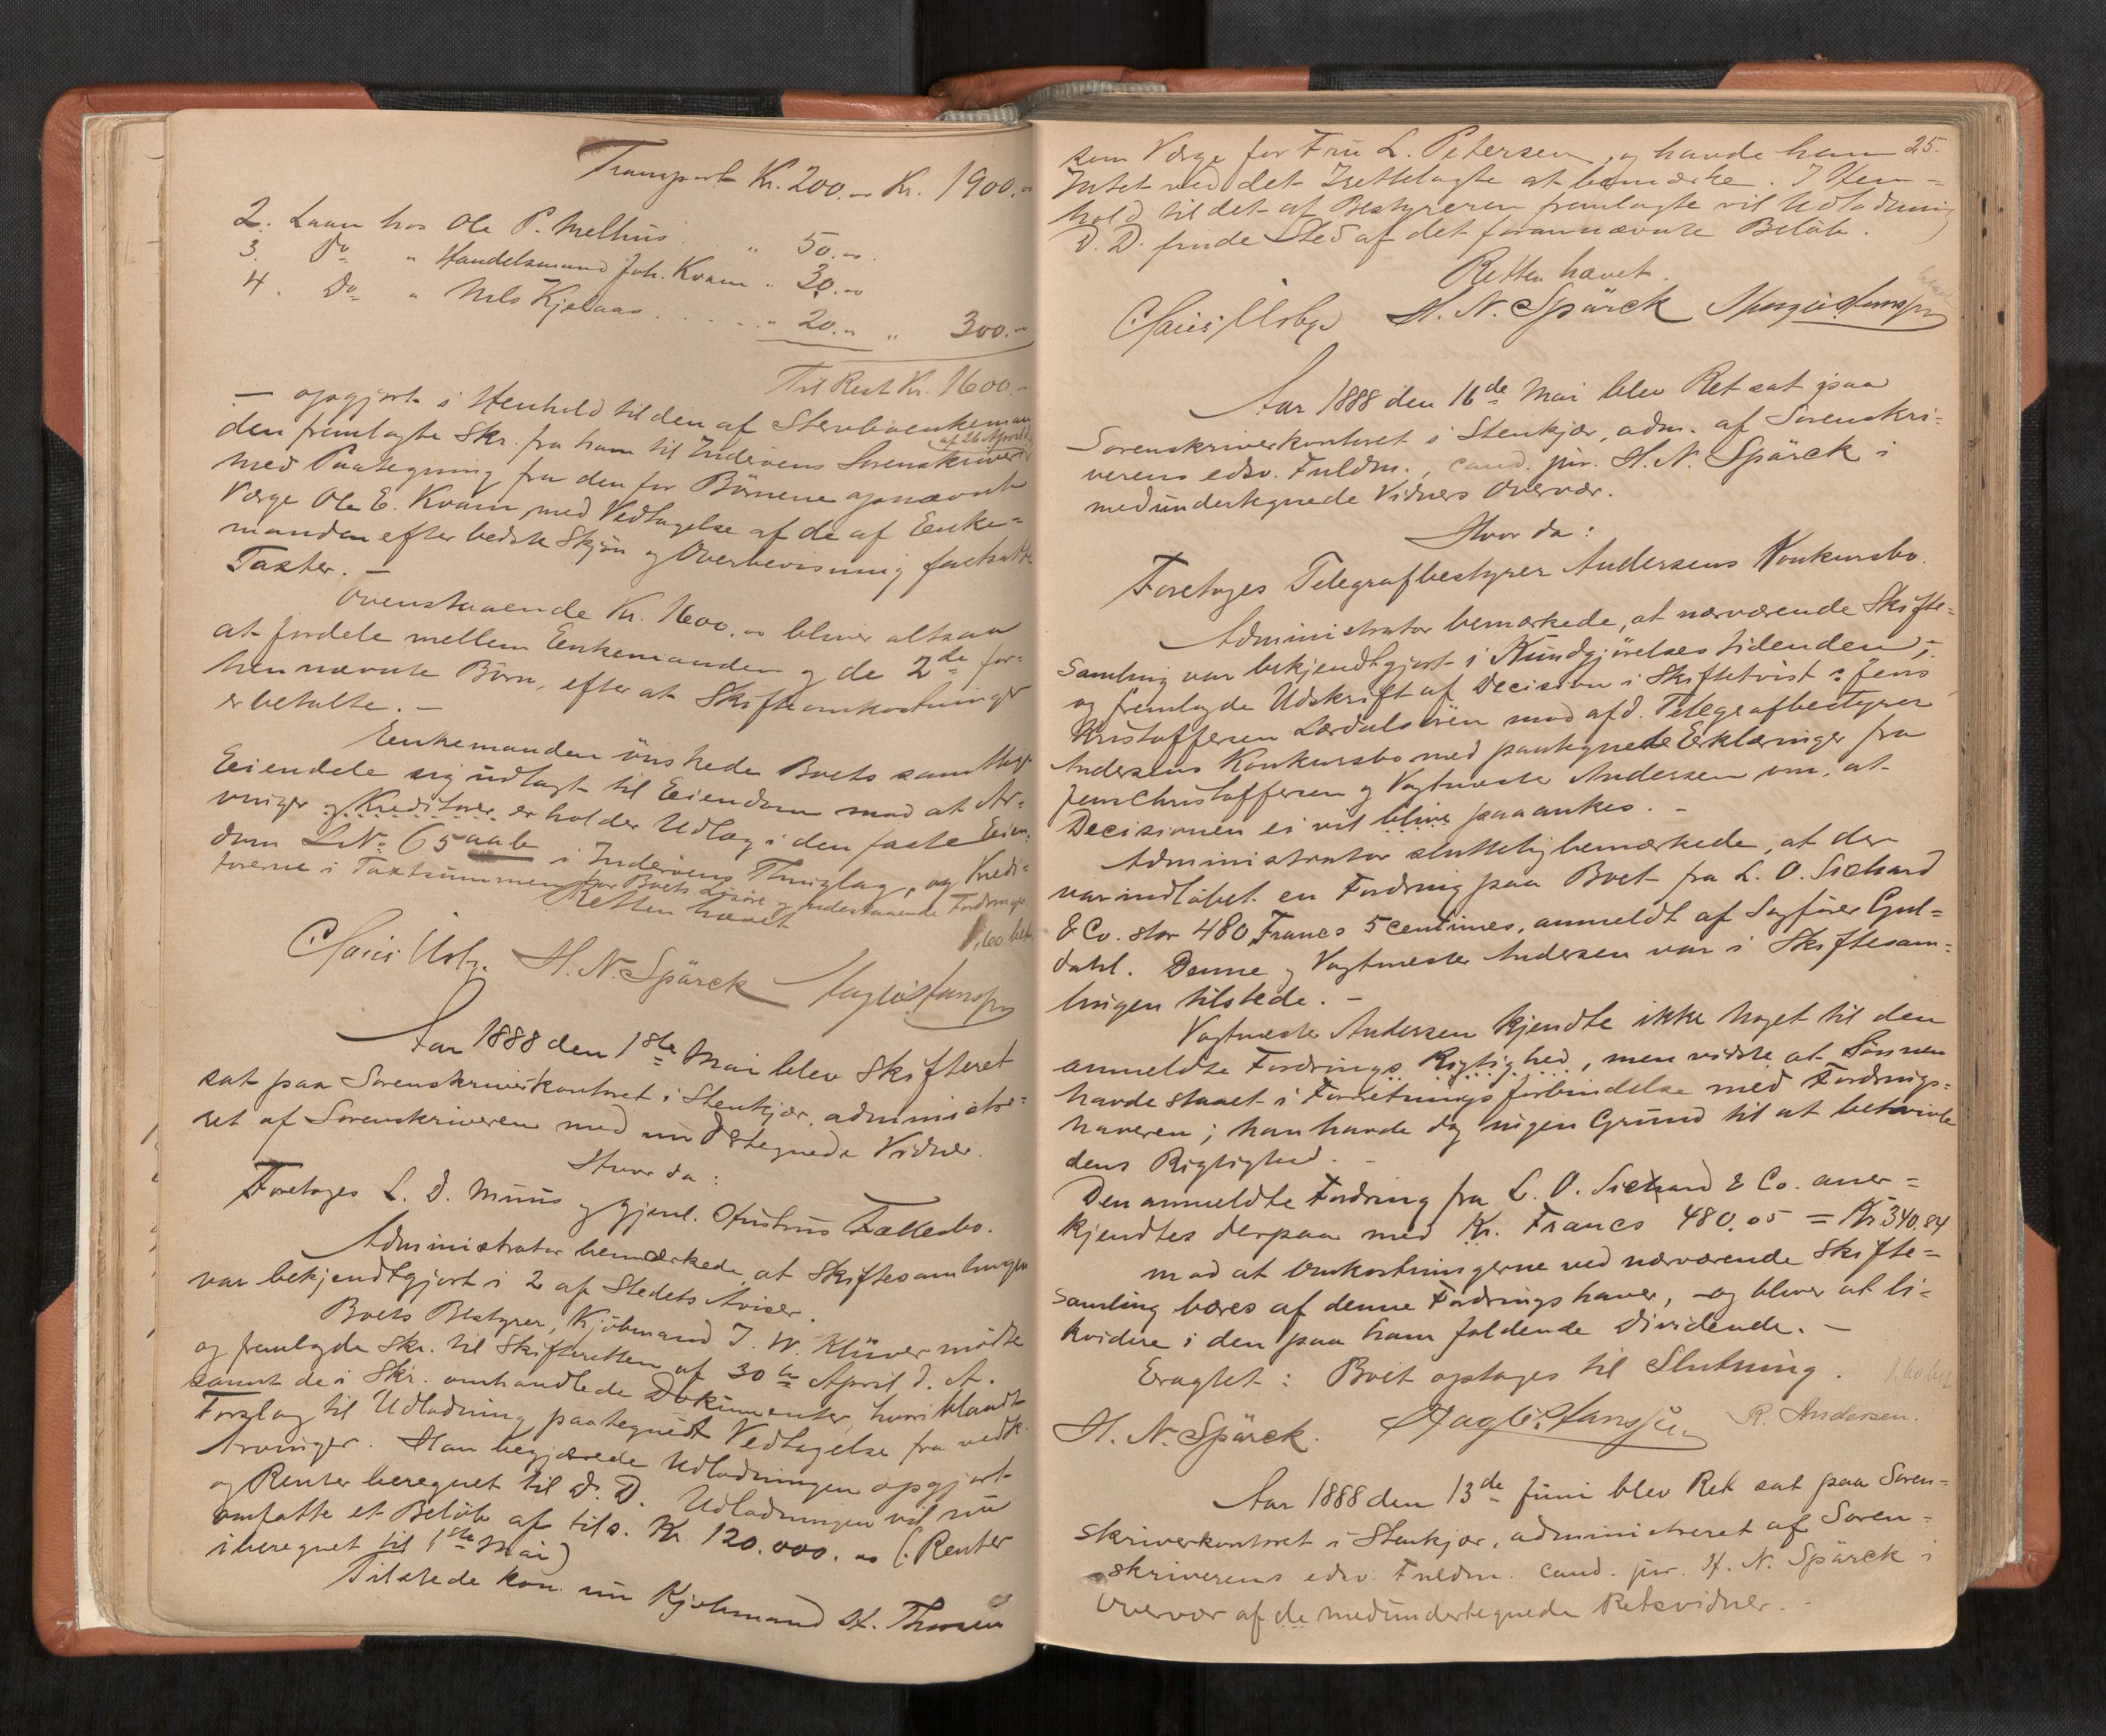 Transport Kr. 200.00 Kr. 1900.00
2. Laan hos Ole P. Melhus " 50.00
3. Do " Handelsmand Joh. Kvam " 30.00
4. Do " Nils Kjelaas . . . . " 20.00 " 300.00
Til Rest Kr. 1600.-
— opgjort i Henhold til den af Stervboenkeman
den fremlagte Skr. fra ham til Inderøens Sorenskriver af 26 April d.A.
med Paategning fra den for Börnene opnævnte
Verge Ole E. Kvam, med Vedtagelse af de af Enke=
manden efter bedste Skjön og Overbevisning fastsatte
Taxter. —
Ovenstaaende Kr. 1600.00 bliver altsaa
at fordele mellem Enkemanden og de 2de for=
hen nævnte Börn, efter at Skifteomkostninger
er betalte. —
Enkemanden önskede Boets samtlige
Eiendele sig udlagt til Eiendom mod at Ar=
vinger og Kreditorer erholder Udlæg i den faste Eien=
dom LNo 65 aab i Inderøens Thinglag, og Kredi=
torerne i Taxtsummen for Boets Lösöre og udestaaende Fordringer.
Retten hævet
1,60 bet.
H. N. Spärck
Aar 1888 den 1ste Mai blev Skifteret
sat paa Sorenskriverkontoret i Stenkjær, administre=
ret af Sorenskriveren med undertegnede Vidner.
Hvor da:
Foretoges L. D. Muus og gjenl. Hustrus Fællesbo.
Administrator bemærkede, at Skiftesamlingen
var bekjendtgjort i 2 af Stedets Aviser.
Boets Bestyrer, Kjöbmand I. W. Klüver mödte
og fremlagde Skr. til Skifteretten af 30te April d. A.
samt de i Skr. omhandlede Dokumenter, hvoriblandt
Forslag til Udlodning paategnet Vedtagelse fra vedk.
Arvinger. Han begjærede Udlodningen opgjort
og Renter beregnet til D. D. Udlodningen vil nu
omfatte et Belöb af tils. Kr. 120.000.00 (: Renter
iberegnet til 1ste Mai)
Tilstede kom nu Kjöbmand H. Thaasen
25.
som Verge for Fru L. Petersen, og havde han
Intet ved det Irettelagte at bemærke. I Hen=
hold til det af Bestyreren fremlagte vil Udlodning
D. D. finde Sted af det forannævnte Belöb.
Retten hævet.
H. N. Spärck
Aar 1888 den 16de Mai blev Ret sat paa
Sorenskriverkontoret i Stenkjær, adm. af Sorenskri=
verens edsv. Fuldm., cand. jur. H. N. Spärck i
medundertegnede Vidners Overvær.
Hvor da:
Foretoges Telegrafbestyrer Andersens Konkursbo.
Administrator bemærkede, at nærværende Skifte=
samling var bekjendtgjort i Kundgjörelsestidenden,
og fremlagde Udskrift af Decision i Skiftetvist: Jens
Kristoffersen Lærdalsören mod afd. Telegrafbestyrer
Andersens Konkursbo med paategnede Erklæringer fra
Jens Christoffersen og Vagtmester Andersen om, at
Decisionen ei vil blive paaanket. —
Administrator sluttelig bemærkede, at der
var indlöbet en Fordring paa Boet fra L. O. Sichard
& Co. stor 480 Francs 5 centimes, anmeldt af Sagförer Gul=
dahl. Denne og Vagtmester Andersen var i Skiftesam=
lingen tilstede. —
Vagtmester Andersen kjendte ikke noget til den
anmeldte Fordrings Rigtighed, men vidste at Sönnen
havde staaet i Forretningsforbindelse med Fordrings=
haveren; han havde dog ingen Grund til at betvivle
dens Rigtighed. —
Den anmeldte Fordring fra L. O. Sichard & Co. aner=
kjendtes derpaa med Kr. Francs 480.05 = Kr. 340.84
mod at Omkostningerne ved nærværende Skifte=
samling bæres af denne Fordringshaver, og bliver at li=
kvidere i den paa ham faldende Dividende. —
Eragtet: Boet optages til Slutning.
1,60 bet
H. N. Spärck. R. Andersen.
Aar 1888 den 13de Juni blev Ret sat paa Soren=
skriverkontoret i Stenkjær, administreret af Soren=
skriverens edsv. Fuldm. cand. jur. H. N. Spärck i
Overvær af de medundertegnede Retsvidner. —